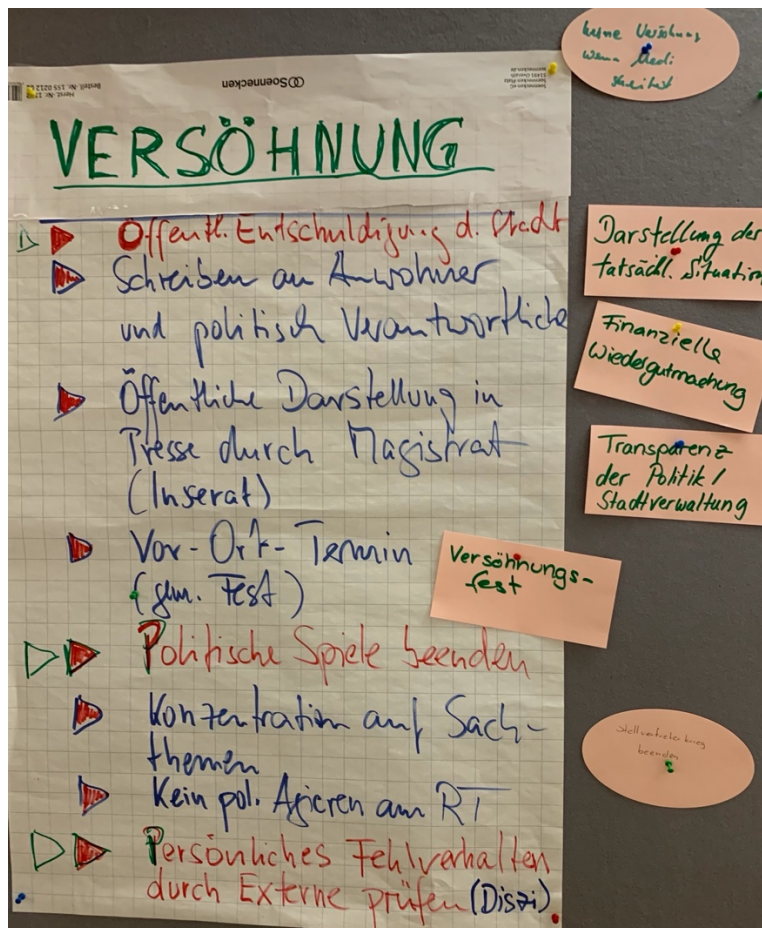 keine Versöhnung
wenn Medi
scheitert
Soennecken
VERSÖHNUNG
Öffentl. Entschuldigung d. Stadt
Schreiben an Anwohner
und politisch Verantwortliche
Öffentliche Darstellung in
Presse durch Magistrat
(Inserat)
Vor-Ort-Termin
(gem. Fest)
Politische Spiele beenden
Konzentration auf Sach-
themen
Kein pol. Agieren am RT
Persönliches Fehlverhalten
durch Externe prüfen (Diszi)
Darstellung der
tatsächl. Situation
Finanzielle
Wiedergutmachung
Transparenz
der Politik /
Stadtverwaltung
Versöhnungs-
fest
Stellvertreterkrieg
beenden